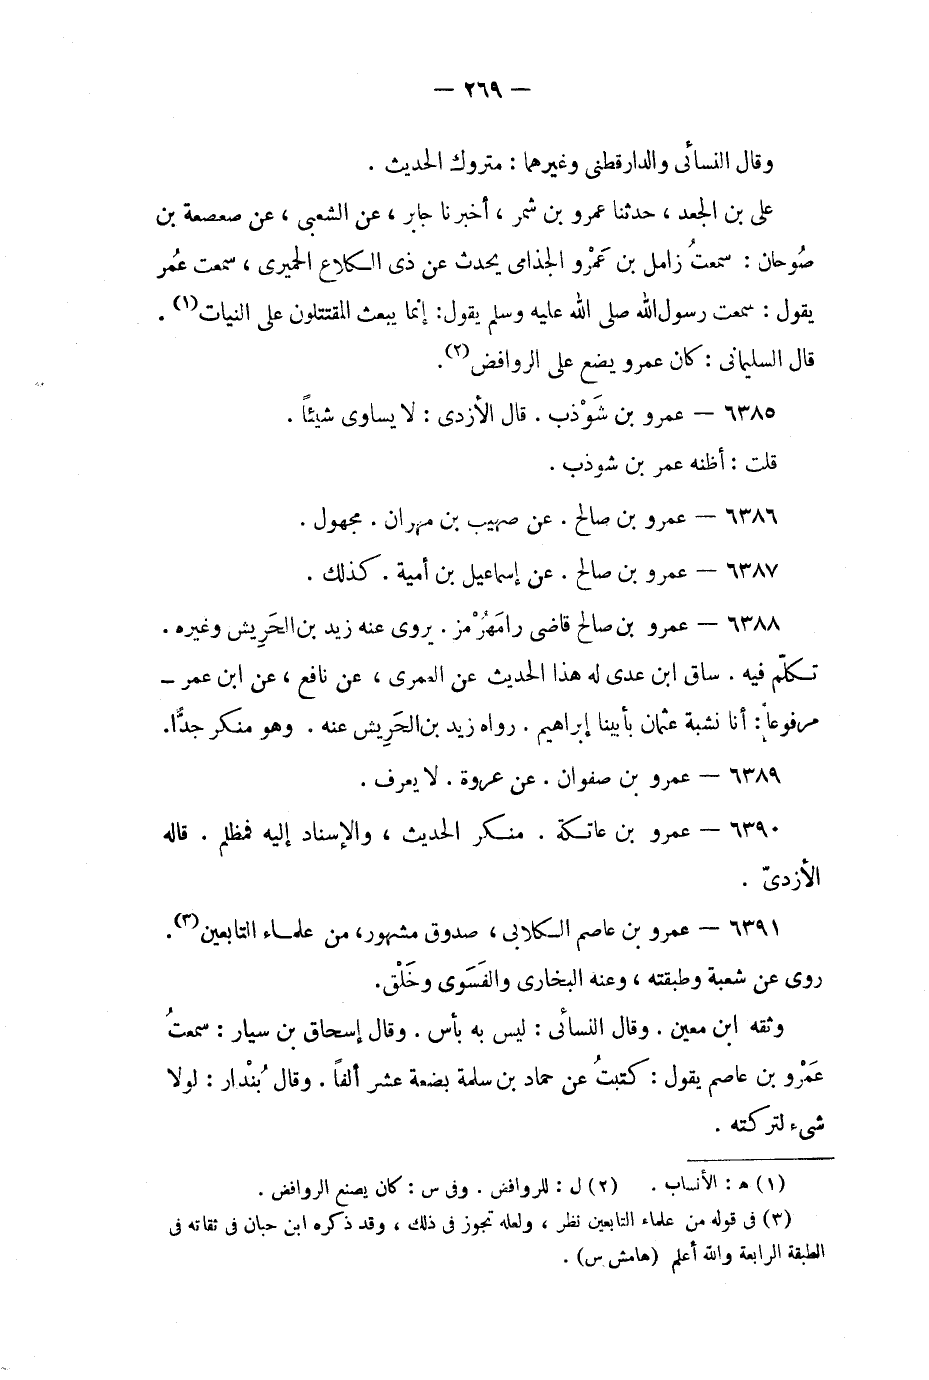 — ٢٦٩ —
وقال النسأئى والدارقطنى وغيرهما : متروك الحديث .
على بن الجعد ، حدثنا عمرو بن شمر ، أخبرنا جابر ، عن الشعبى ، عن صعصعة بن
صُوحان : سمعتُ زامل بن عَمْرو الجذامى يحدث عن ذى الكلاع الحميرى ، سمعت عُمر
يقول : سمعت رسول الله صلى الله عليه وسلم يقول: إنما يبعث المقتتلون على النيات(١) .
قال السليمانى : كان عمرو يضع على الروافض(٢).
٦٣٨٥ — عمرو بن شَوْذب . قال الأزدى : لا يساوى شيئاً .
قلت : أظنه عمر بن شوذب .
٦٣٨٦ — عمرو بن صالح . عن صهيب بن مهران . مجهول .
٦٣٨٧ — عمرو بن صالح . عن إسماعيل بن أمية . كذلك .
٦٣٨٨ — عمرو بن صالح قاضى رامَهُرْمز . يروى عنه زيد بن الحَرِيش وغيره .
تكلّم فيه . ساق ابن عدى له هذا الحديث عن العمرى ، عن نافع ، عن ابن عمر –
مرفوعاً: أنا نشبة عثمان بأبينا إبراهيم . رواه زيد بن الحَرِيش عنه . وهو منكر جدًّا.
٦٣٨٩ — عمرو بن صفوان . عن عروة . لا يعرف .
٦٣٩٠ — عمرو بن عاتكة . منكر الحديث ، والإسناد إليه فمظلم . قاله
الأزدىّ .
٦٣٩١ — عمرو بن عاصم الكلابى ، صدوق مشهور، من علماء التابعين(٣).
روى عن شعبة وطبقته ، وعنه البخارى والفَسَوى وخَلْق.
وثقه ابن معين . وقال النسأئى : ليس به بأس . وقال إسحاق بن سيار : سمعتُ
عَمْرو بن عاصم يقول : كتبتُ عن حماد بن سلمة بضعة عشر ألفاً . وقال بُنْدار : لولا
شىء لتركته .
(١) ه : الأنساب . (٢) ل : للروافض . وفى س : كان يصنع الروافض .
(٣) فى قوله من علماء التابعين نظر ، ولعله تجوز فى ذلك ، وقد ذكره ابن حبان فى ثقاته فى
الطبقة الرابعة والله أعلم (هامش س) .